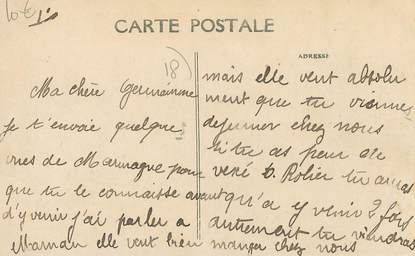 10 €
CARTE POSTALE
18)
ADRESSE
Ma chère Germainne
Je t'envoie quelque
vues de Marmagne pour
que tu le connaisse avant
d'y venir j'ai parler a
Maman elle veut bien
mais elle veut absolu
ment que tu viennes
dejeuner chez nous
si tu as peur de
Rolier tu auras
qu'a y venir 2 fois
autrement tu viendras
manger chez nous